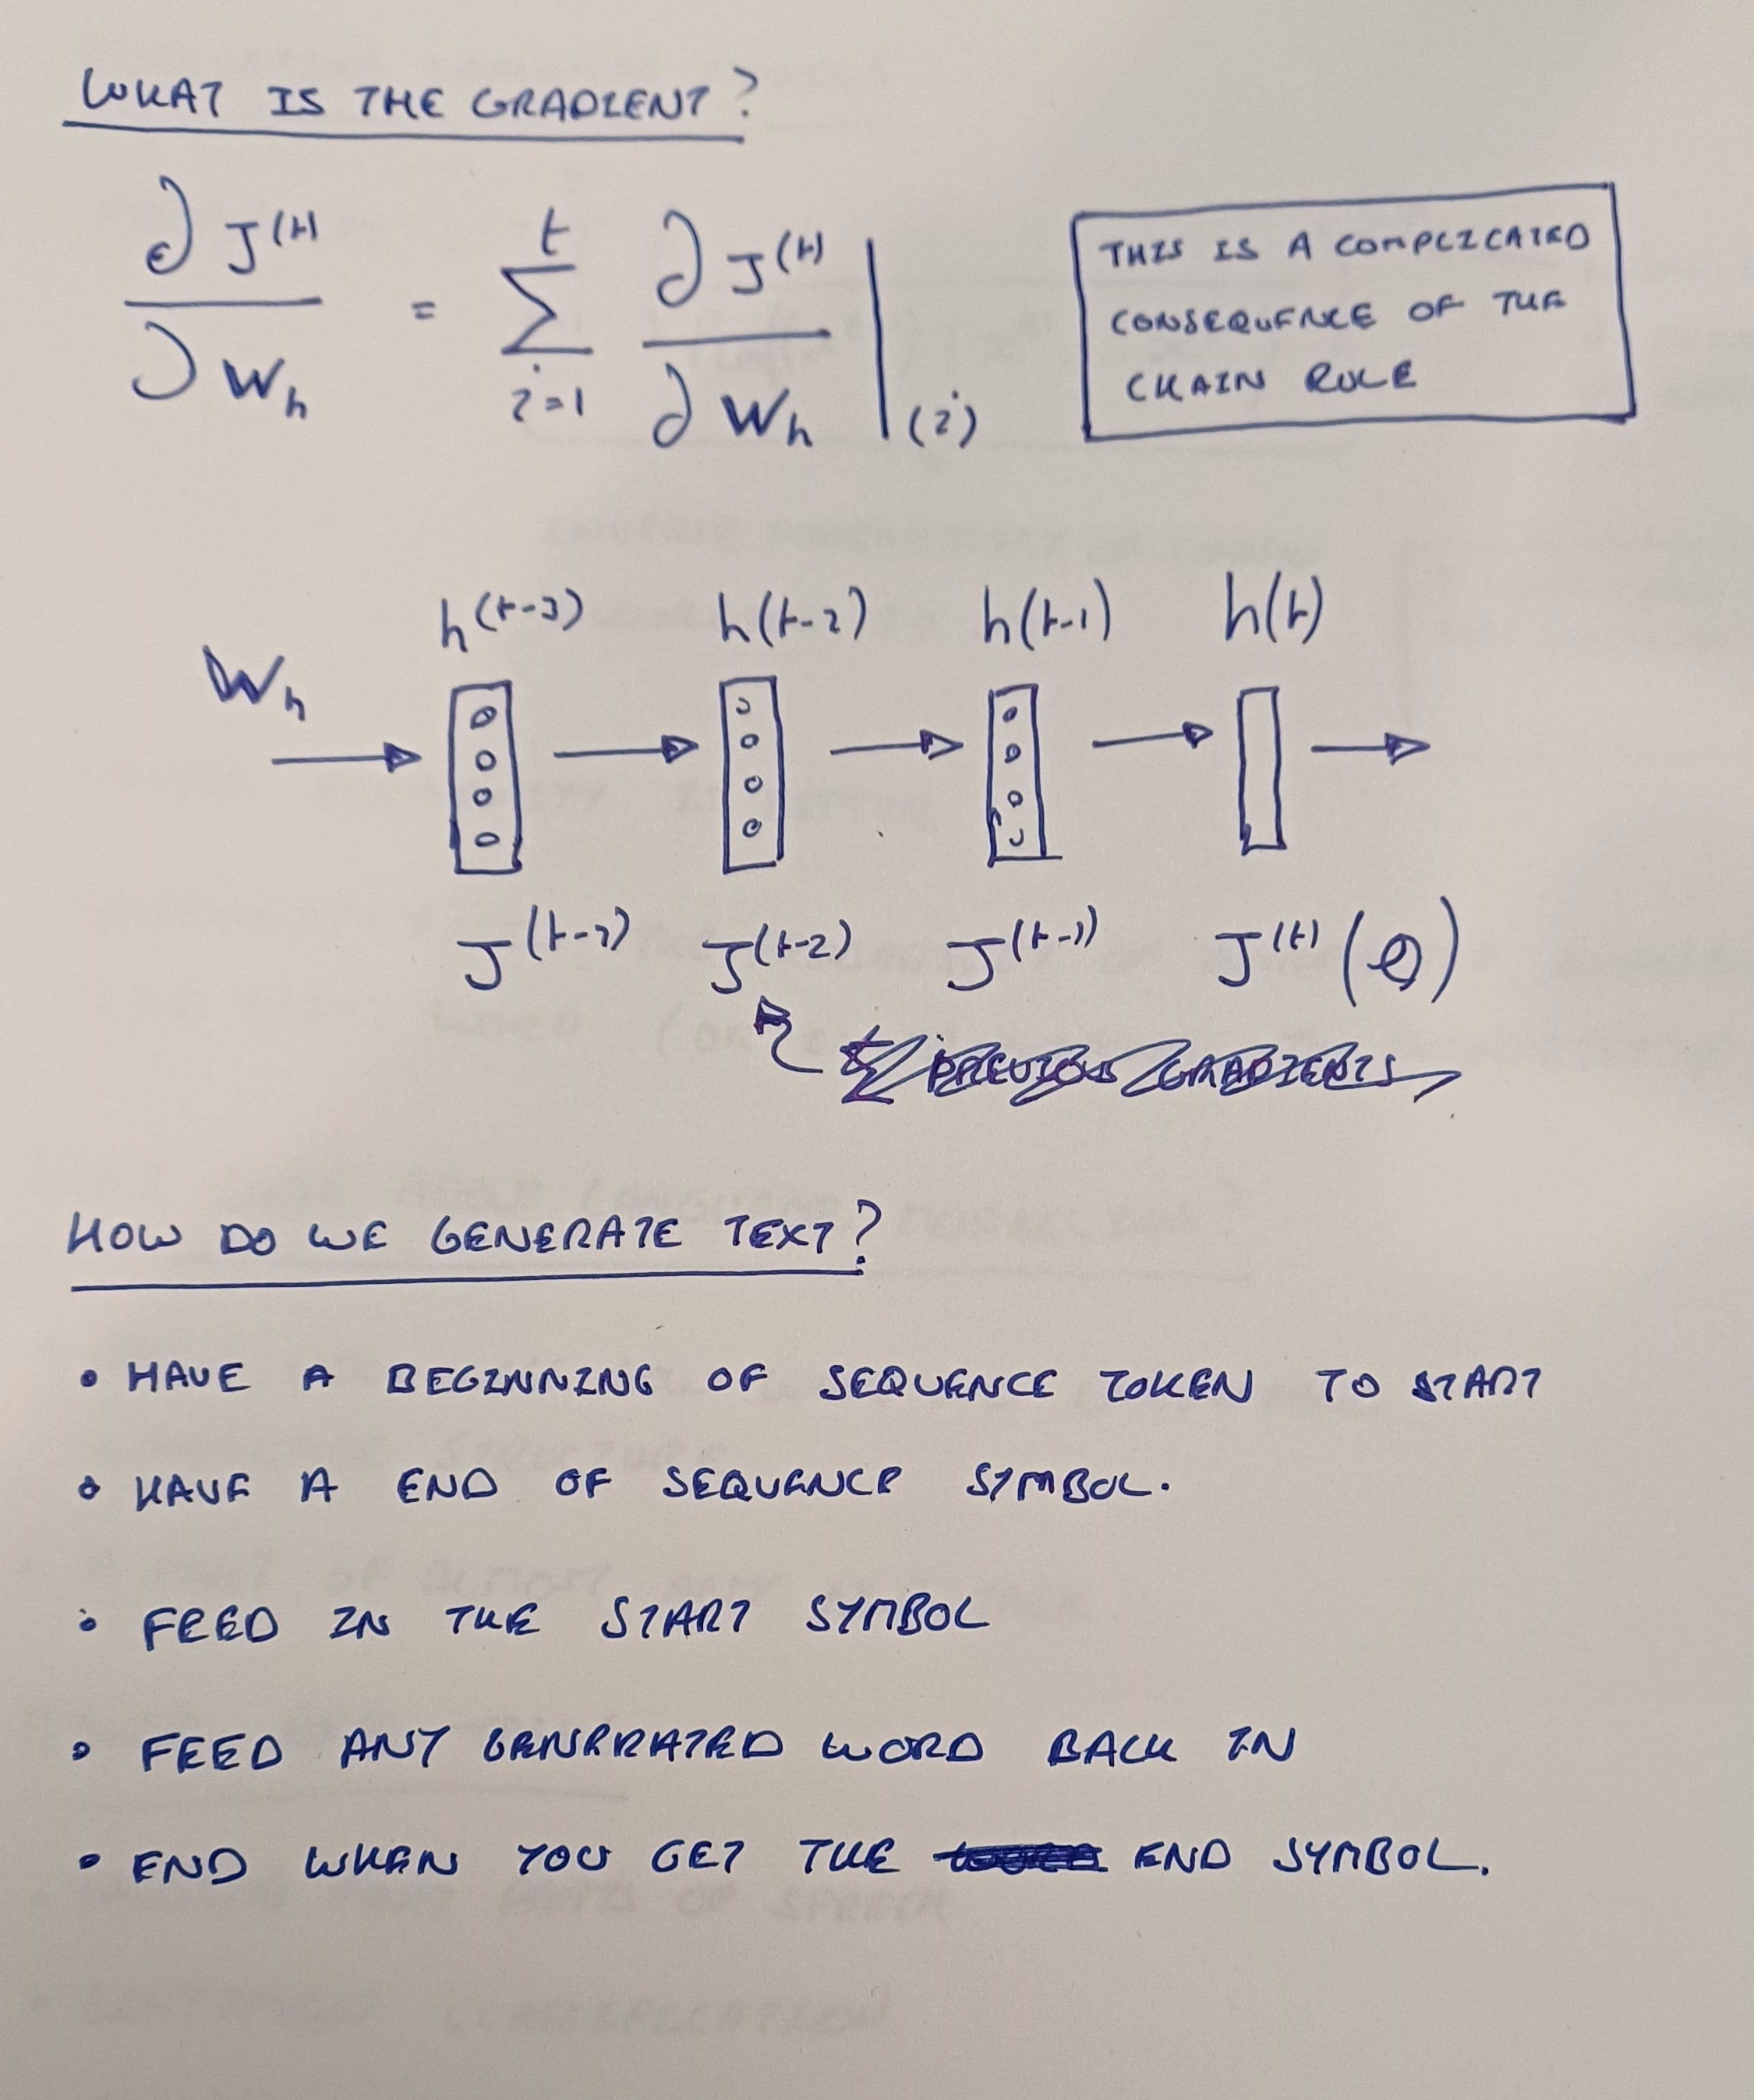 WHAT IS THE GRADIENT?
∂J^(t) / ∂W_h = Σ_{i=1}^{t} ∂J^(t) / ∂W_h |_(i)
THIS IS A COMPLICATED
CONSEQUENCE OF THE
CHAIN RULE
h^(t-3) h(t-2) h(t-1) h(t)
W_h
J^(t-3) J^(t-2) J^(t-1) J^(t)(θ)
PREVIOUS GRADIENTS
HOW DO WE GENERATE TEXT?
• HAVE A BEGINNING OF SEQUENCE TOKEN TO START
• HAVE A END OF SEQUENCE SYMBOL.
• FEED IN THE START SYMBOL
• FEED ANY GENERATED WORD BACK IN
• END WHEN YOU GET THE END SYMBOL.